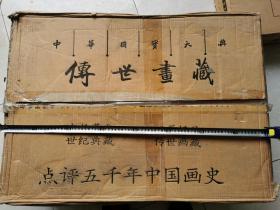 中華國寶大典
傳世畫藏
世纪典藏 传世画藏
点谱五千年中国画史